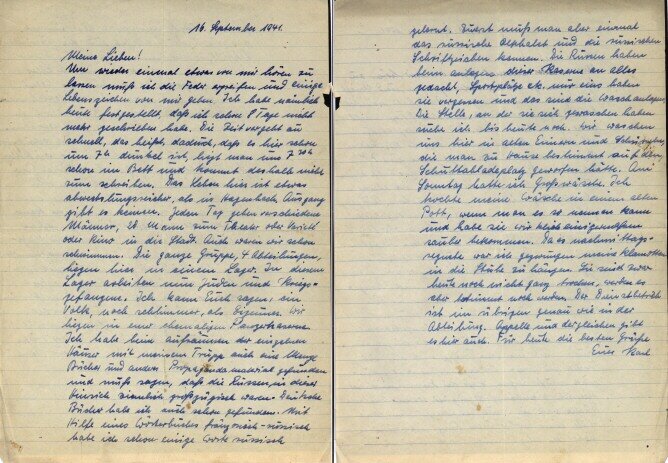 16. September 1941.
Meine Lieben!
Um wieder einmal etwas von mir hören zu
lassen muß ich die Feder ergreifen und einige
Lebenszeichen von mir geben. Ich habe nämlich
heute festgestellt, daß ich schon 8 Tage nicht
mehr geschrieben habe. Die Zeit vergeht zu
schnell, das heißt, dadurch, daß es hier schon
um 7h dunkel ist, liegt man um 7 30h
schon im Bett und kommt deshalb nicht
zum schreiben. Das Leben hier ist etwas
abwechslungsreicher, als in Ausgang
gibt es keinen. Jeden Tag gehen verschiedene
Männer, 28 Mann zum Theater oder Varieté
oder Kino in die Stadt. Auch waren wir schon
schwimmen. Die ganze Gruppe, 4 Abteilungen,
liegen hier in einem Lager. In diesem
Lager arbeiten nun Juden und Kriegs-
gefangene. Ich kann Euch sagen, ein
Volk, noch schlimmer, als Zigeuner. Wir
liegen in einer ehemaligen Panzerkaserne.
Ich habe beim aufräumen der einzelnen
Häuser mit meinem Trupp auch eine Menge
Bücher und anderes Propagandamaterial gefunden
und muß sagen, daß die Russen in dieser
Hinsicht ziemlich großzügig waren. Deutsche
Bücher habe ich auch schon gefunden. Mit
Hilfe eines Wörterbuches französisch-russisch
habe ich schon einige Worte russisch
gelernt. Zuerst muß man aber einmal
das russische Alphabet und die russischen
Schriftzeichen kennen. Die Russen haben
beim anlegen dieser Kaserne an alles
gedacht, Sportplätze etc. nur eins haben
sie vergessen und das sind die Waschanlagen.
Die Stelle, an der sie sich gewaschen haben
suche ich bis heute noch. Wir waschen
uns hier in alten Eimern und Schüsseln,
die man zu Hause bestimmt auf den
Schuttabladeplatz geworfen hätte. Am
Sonntag hatte ich Großwäsche. Ich
kochte meine Wäsche in einem alten
Pott, wenn man es so nennen kann
und habe sie wirklich einigermaßen
sauber bekommen. Da es nachmittags
regnete war ich gezwungen meine Klamotten
in die Stube zu hängen. Sie sind zwar
heute noch nicht ganz trocken, werden es
aber bestimmt noch werden. Der Dienstbetrieb
ist im übrigen genau wie in der
Abteilung. Appelle und dergleichen gibt
es hier auch. Für heute die besten Grüße
Euer Karl